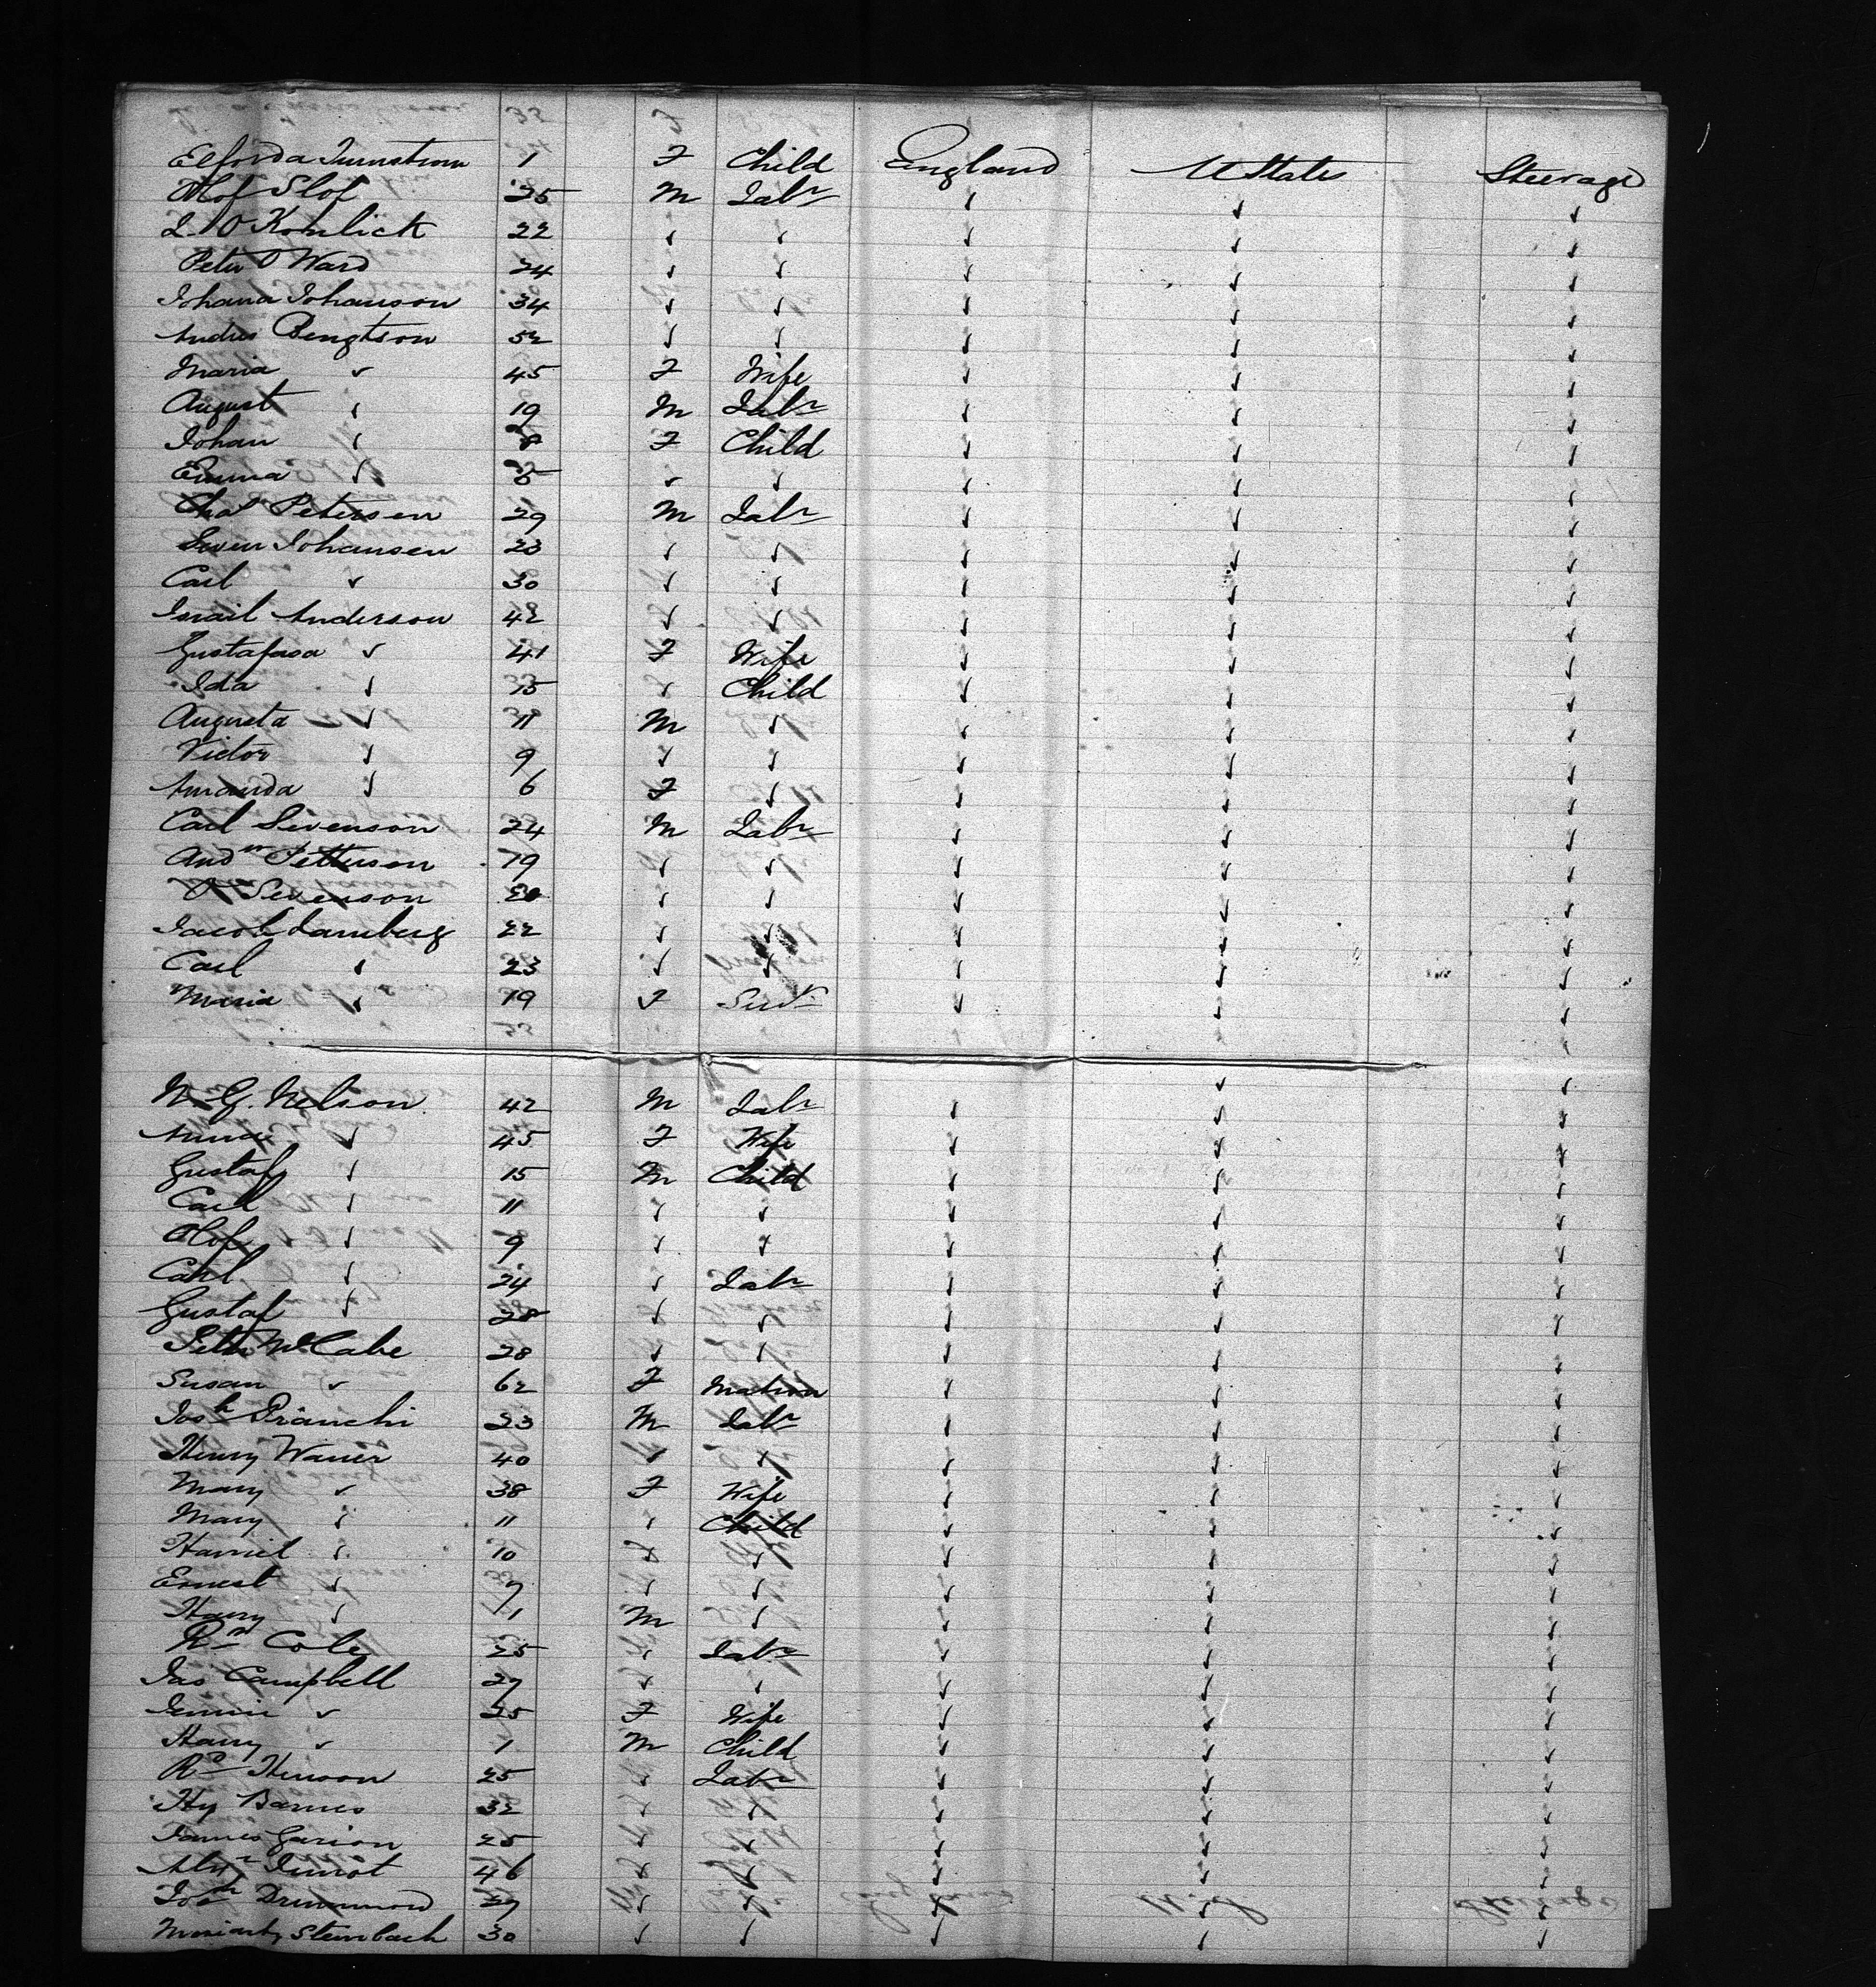 Elforda Turnstrom 1 F Child England U States Steerage
Olof Slof 25 M Labr ✓ ✓ ✓
L. O Komlick 22 ✓ ✓ ✓ ✓ ✓
Peter O Ward 24 ✓ ✓ ✓ ✓ ✓
Johana Johanson 34 ✓ ✓ ✓ ✓ ✓
Andres Bengtson 52 ✓ ✓ ✓ ✓ ✓
Maria ✓ 45 F Wife ✓ ✓ ✓
August ✓ 19 M Labr ✓ ✓ ✓
Johan ✓ 8 F Child ✓ ✓ ✓
Emma ✓ 5 ✓ ✓ ✓ ✓ ✓
Chas Petersen 29 M Labr ✓ ✓ ✓
Seven Johansen 23 ✓ ✓ ✓ ✓ ✓
Carl ✓ 30 ✓ ✓ ✓ ✓ ✓
Israil Anderson 42 ✓ ✓ ✓ ✓ ✓
Gustafasa ✓ 41 F Wife ✓ ✓ ✓
Ida ✓ 15 ✓ Child ✓ ✓ ✓
Augusta ✓ 11 M ✓ ✓ ✓ ✓
Victor ✓ 9 ✓ ✓ ✓ ✓ ✓
Amanda ✓ 6 F ✓ ✓ ✓ ✓
Carl Sevenson 24 M Labr ✓ ✓ ✓
Andw Petterson 19 ✓ ✓ ✓ ✓ ✓
O Sevenson 20 ✓ ✓ ✓ ✓ ✓
Jacob Lamberg 22 ✓ ✓ ✓ ✓ ✓
Carl ✓ 23 ✓ ✓ ✓ ✓ ✓
Maria ✓ 19 F Servt ✓ ✓ ✓
N. G. Nelson 42 M Labr ✓ ✓ ✓
Annae ✓ 45 F Wife ✓ ✓ ✓
Gustaf ✓ 15 M Child ✓ ✓ ✓
Carl ✓ 11 ✓ ✓ ✓ ✓ ✓
Olof ✓ 9 ✓ ✓ ✓ ✓ ✓
Carl ✓ 24 ✓ Labr ✓ ✓ ✓
Gustaf ✓ 28 ✓ ✓ ✓ ✓ ✓
Peter McCabe 28 ✓ ✓ ✓ ✓ ✓
Susan ✓ 62 F Matron ✓ ✓ ✓
Josh Prianchi 23 M Labr ✓ ✓ ✓
Henry Waner 40 ✓ ✓ ✓ ✓ ✓
Mary ✓ 38 F Wife ✓ ✓ ✓
Mary ✓ 11 ✓ Child ✓ ✓ ✓
Harriet ✓ 10 ✓ ✓ ✓ ✓ ✓
Ernest ✓ 7 ✓ ✓ ✓ ✓ ✓
Harry ✓ 1 M ✓ ✓ ✓ ✓
Rd Cole 25 ✓ Labr ✓ ✓ ✓
Jas Campbell 27 ✓ ✓ ✓ ✓ ✓
Jennie ✓ 25 F Wife ✓ ✓ ✓
Harry ✓ 1 M Child ✓ ✓ ✓
Rd Henson 25 ✓ Labr ✓ ✓ ✓
Hy Barnes 32 ✓ ✓ ✓ ✓ ✓
James Garion 25 ✓ ✓ ✓ ✓ ✓
Alexr 46 ✓ ✓ ✓ ✓ ✓
Josh Drummond 27 ✓ ✓ ✓ ✓ ✓
Steinbach 30 ✓ ✓ ✓ ✓ ✓